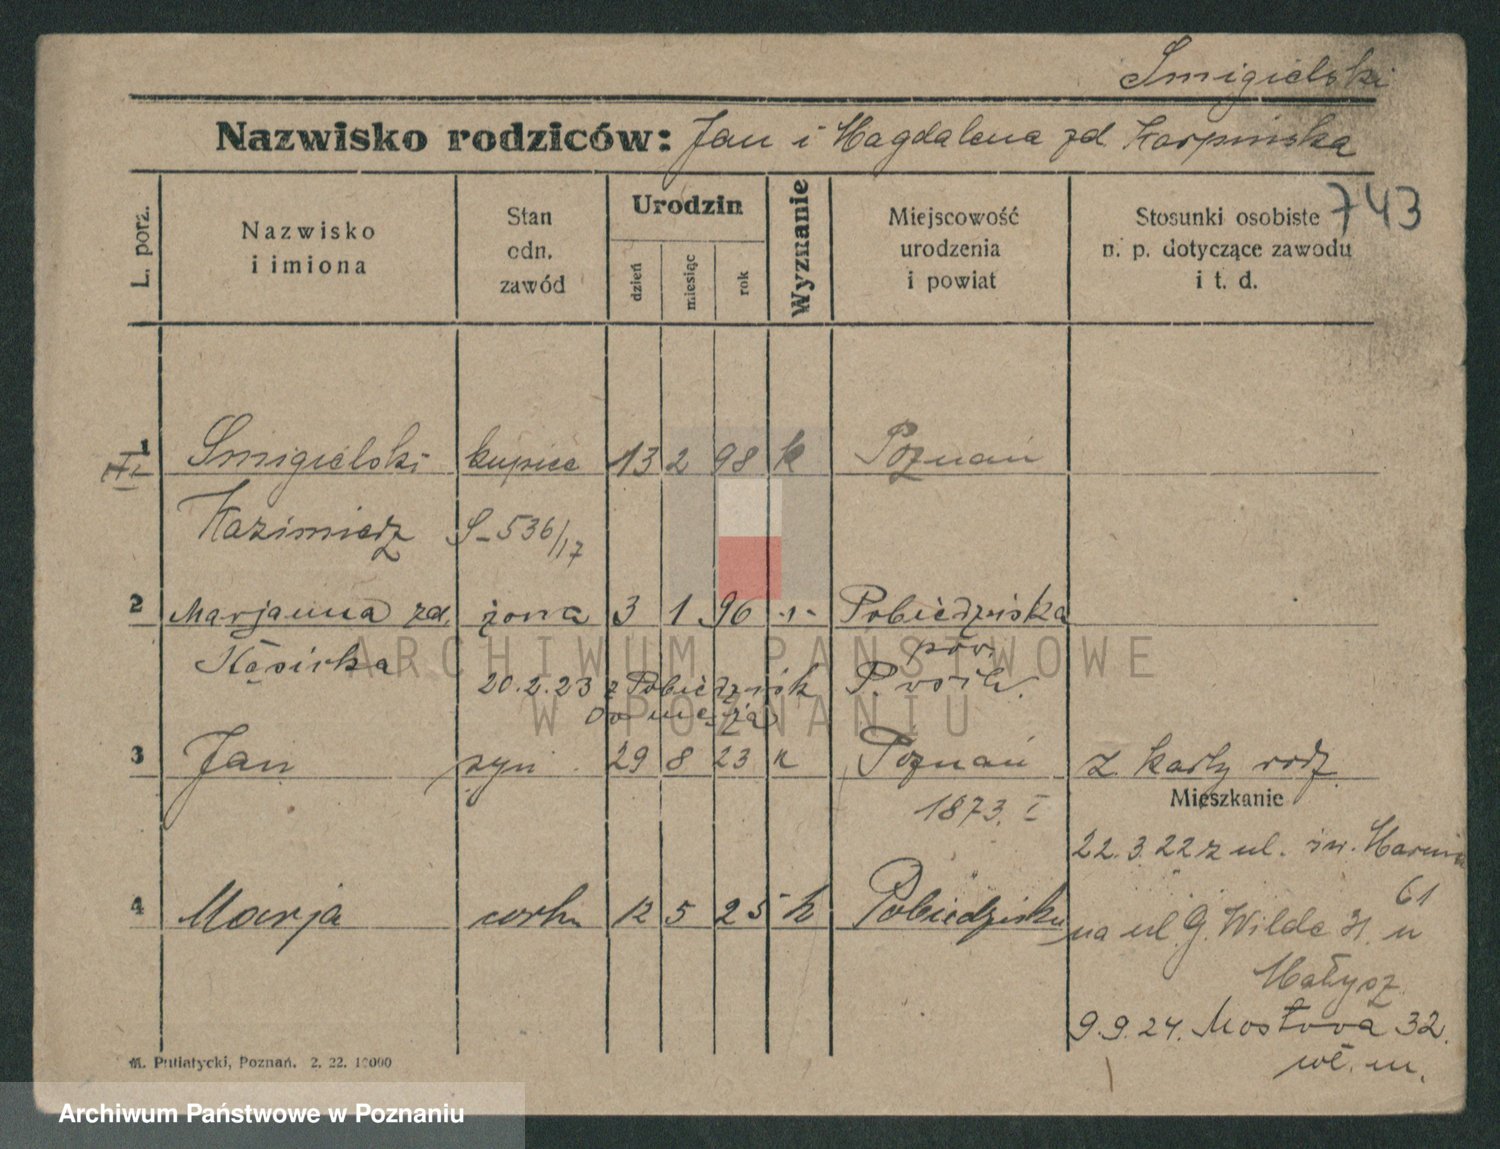 Smigielski
Nazwisko rodziców: Jan i Magdalena zd. Karpińska
743
L. porz.
Nazwisko
i imiona
Stan
cdn.
zawód
Urodzin
dzień
miesiąc
rok
Wyznanie
Miejscowość
urodzenia
i powiat
Stosunki osobiste
n. p. dotyczące zawodu
i t. d.
1 Smigielski kupiec 13 2 98 k Poznań
Kazimierz S-536/17
2 Marjanna zd. żona 3 1 96 -"- Pobiedziska
pow.
20.2.23 z Pobiedzisk
do męża
3 Jan syn 29 8 23 k Poznań z karty rodz.
1873. I
Mieszkanie
22.3.22 z ul. św. Marcin
61
4 Marja córka 12 5 25 k Pobiedziska
na ul. G. Wilda 31 u
Małysz
9.9.24. Mostowa 32.
wł. m.
M. Putiatycki, Poznań. 2. 22. 10000
ARCHIWUM PAŃSTWOWE
W POZNANIU
Archiwum Państwowe w Poznaniu